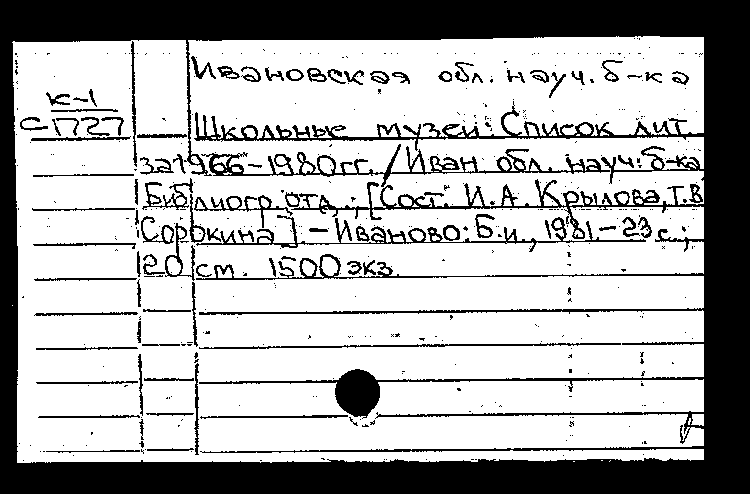 Ивановская обл. науч. б-ка
К-1
С-П727
Школьные музеи: Список лит.
за 1966-1980гг. / Иван обл. науч. б-ка
Библиогр. отд.; [Сост. И.А. Крылова, Т.В
Сорокина]. - Иваново: Б.и., 1981. - 23 с.;
20 см. 1500 экз.